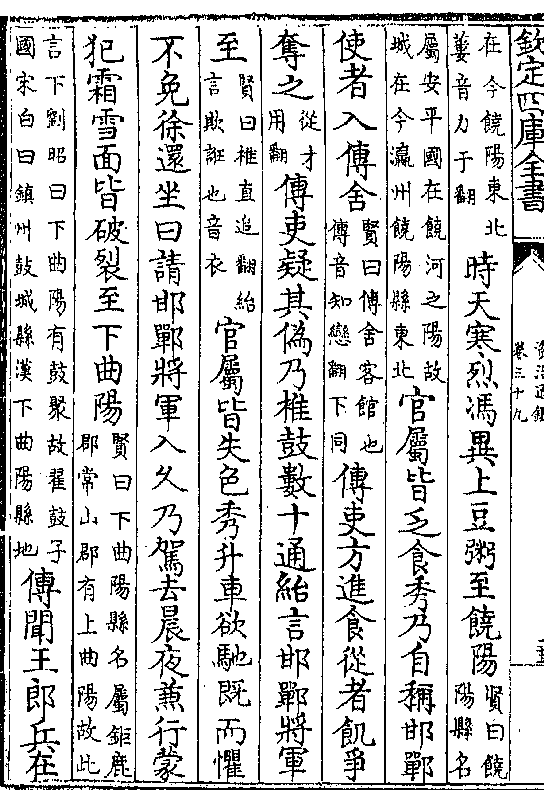 欽定四庫全書
資治通鑑
卷三十九
在今饒陽東北
蔞音力于翻
時天寒烈馮異上豆粥至饒陽
賢曰饒
陽縣名
屬安平國在饒河之陽故
城在今瀛州饒陽縣東北
官屬皆乏食秀乃自稱邯鄲
使者入傳舍
賢曰傳舍客館也
傳音知戀翻下同
傳吏方進食從者飢爭
奪之
從才
用翻
傳吏疑其偽乃椎鼓數十通紿言邯鄲將軍
至
賢曰椎直追翻紿
言欺誑也音衣
官屬皆失色秀升車欲馳既而懼
不免徐還坐曰請邯鄲將軍入久乃駕去晨夜兼行蒙
犯霜雪面皆破裂至下曲陽
賢曰下曲陽縣名屬鉅鹿
郡常山郡有上曲陽故此
言下劉昭曰下曲陽有鼓聚故翟鼓子
國宋白曰鎮州鼓城縣漢下曲陽縣地
傳聞王郎兵在